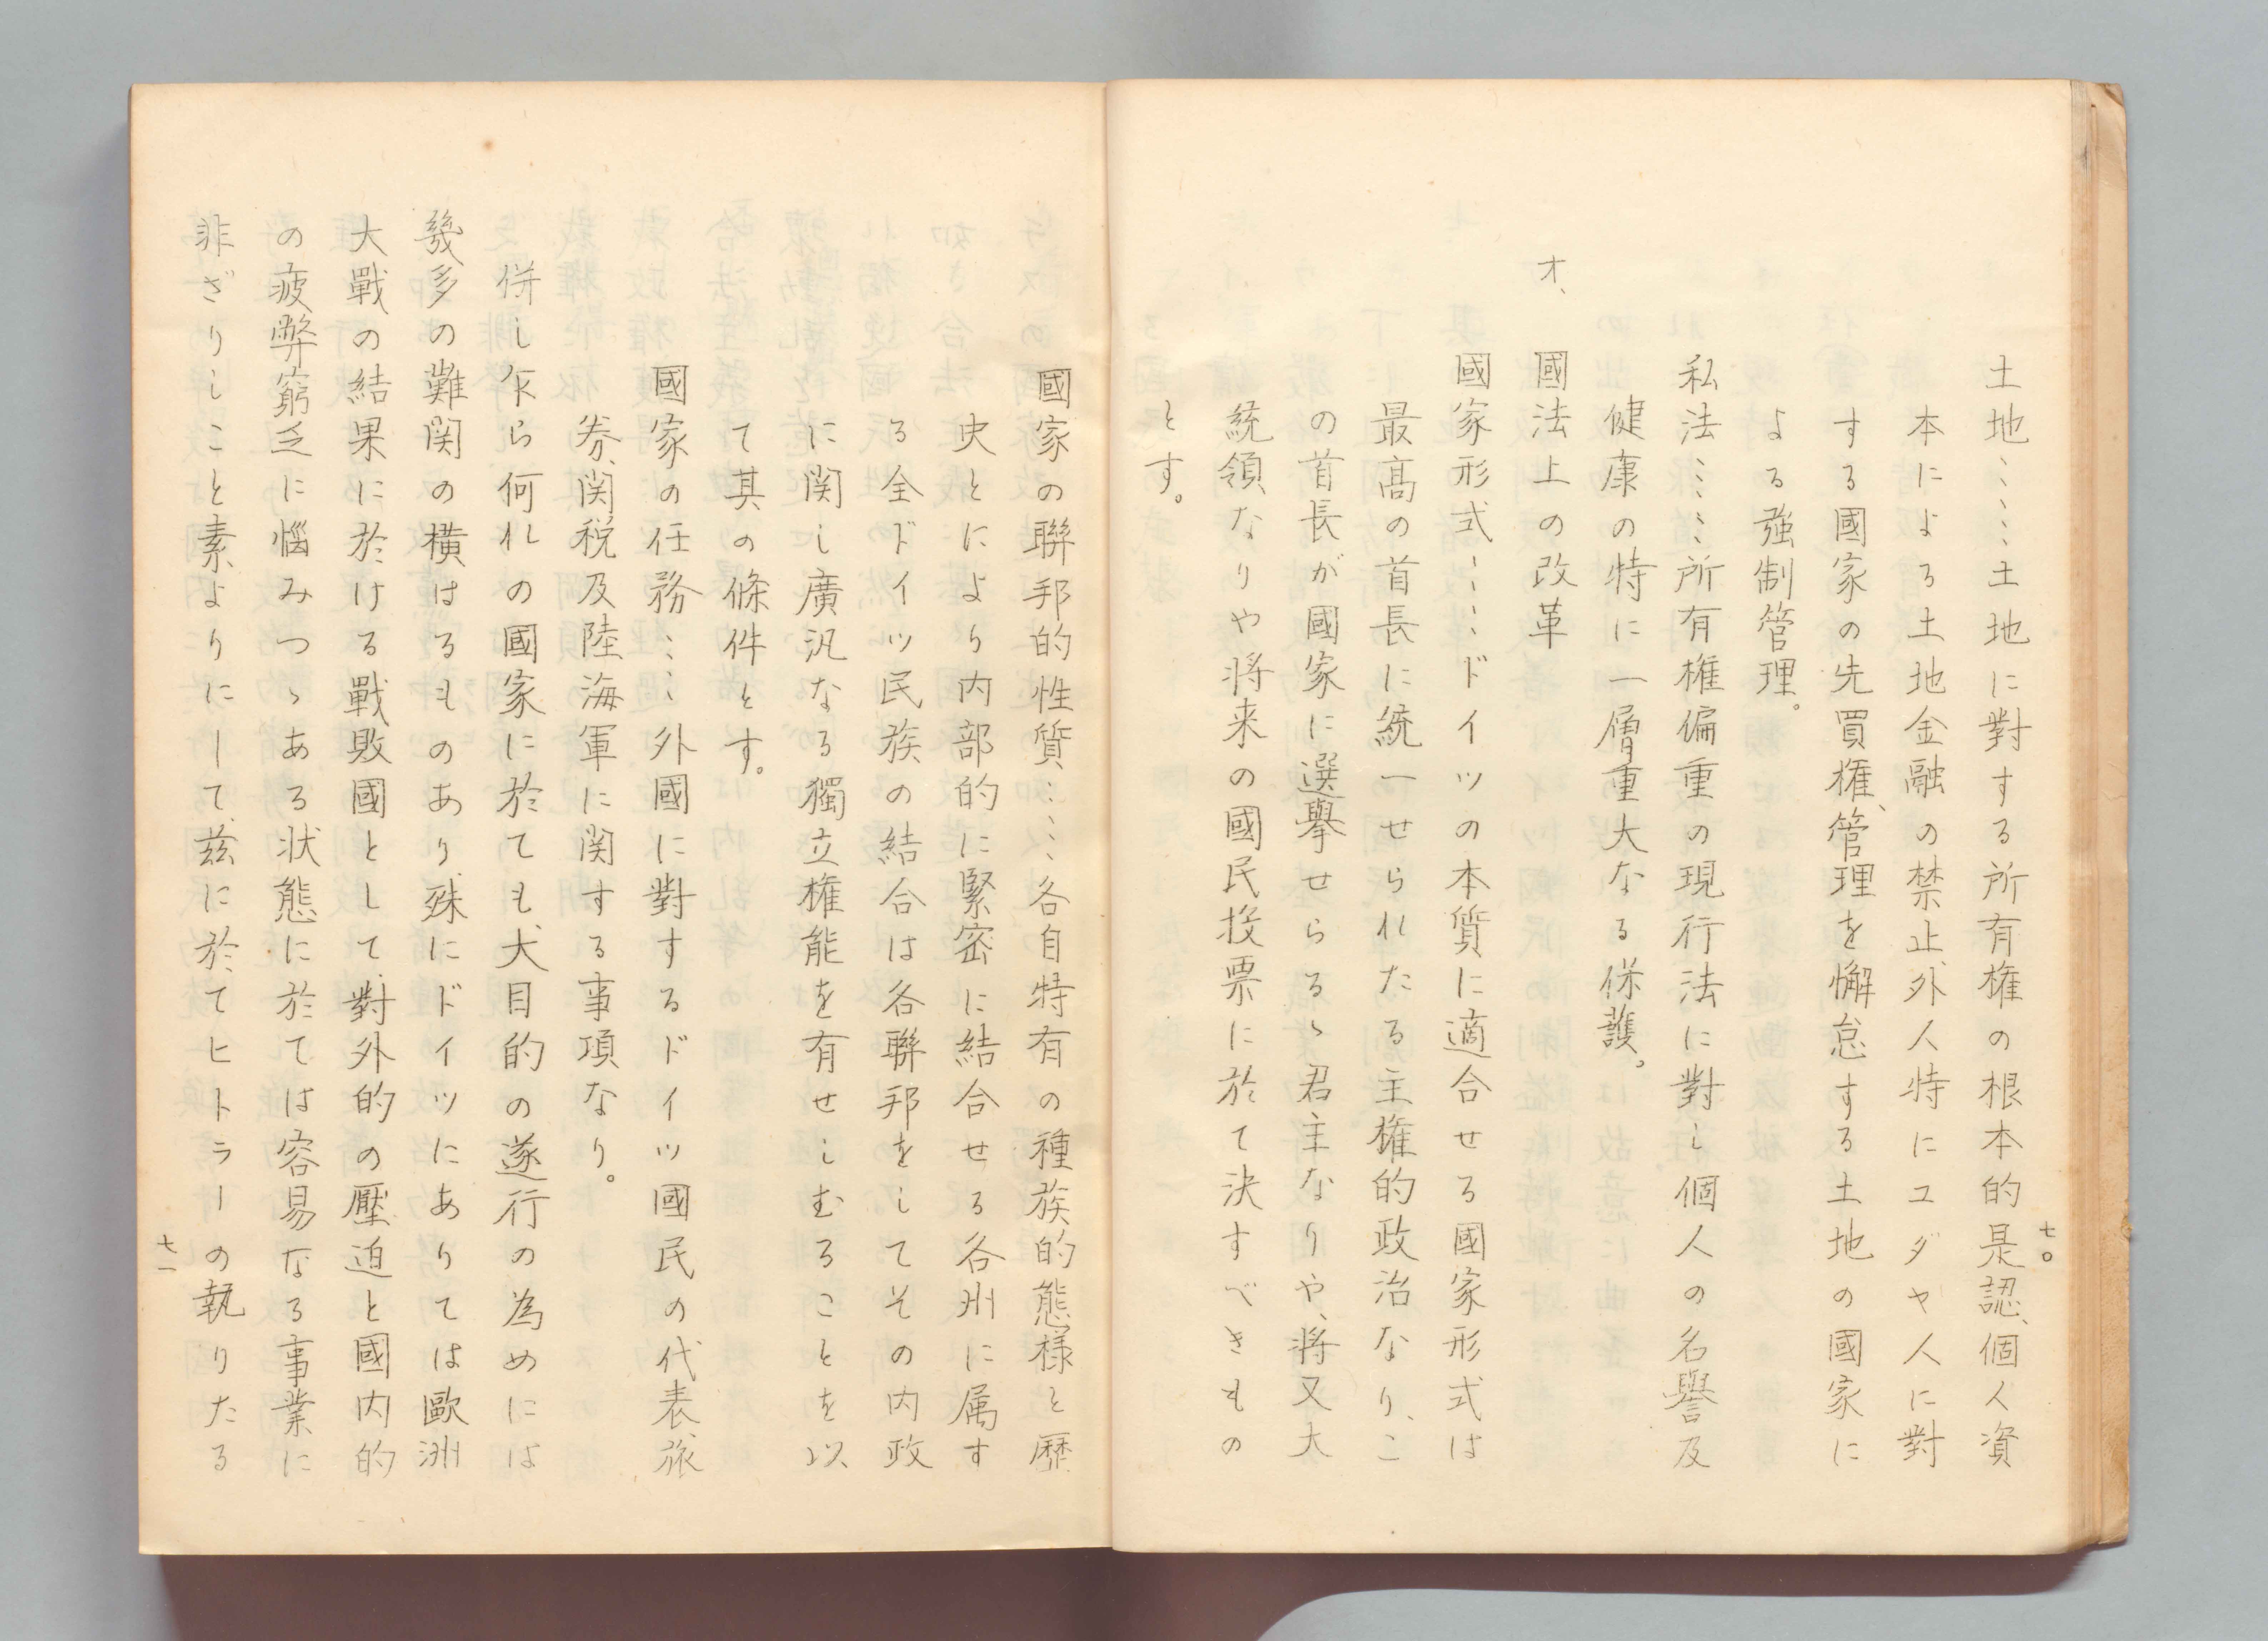 七〇
土地……土地に對する所有権の根本的是認、個人資
本による土地金融の禁止、外人特にユダヤ人に對
する國家の先買権、管理を懈怠する土地の國家に
よる強制管理。
私法……所有権偏重の現行法に對し個人の名譽及
健康の特に一層重大なる保護。
オ、國法上の改革
國家形式……ドイツの本質に適合せる國家形式は
最高の首長に統一せられたる主権的政治なり、こ
の首長が國家に選擧せらるゝ君主なりや、将又大
統領なりや将来の國民投票に於て決すべきもの
とす。
國家の聯邦的性質……各自特有の種族的態様と歴
史とにより内部的に緊密に結合せる各州に属す
る全ドイツ民族の結合は各聯邦をしてその内政
に関し廣汎なる獨立権能を有せしむることを以
て其の條件とす。
國家の任務……外國に對するドイツ國民の代表、旅
券、関税及陸海軍に関する事項なり。
併し乍ら何れの國家に於ても、大目的の遂行の為めには
幾多の難関の横はるものあり、殊にドイツにありては歐洲
大戰の結果に於ける戰敗國として對外的の壓迫と國内的
の疲弊窮乏に惱みつゝある状態に於ては容易なる事業に
非ざりしこと素よりにして、茲に於てヒトラーの執りたる
七一